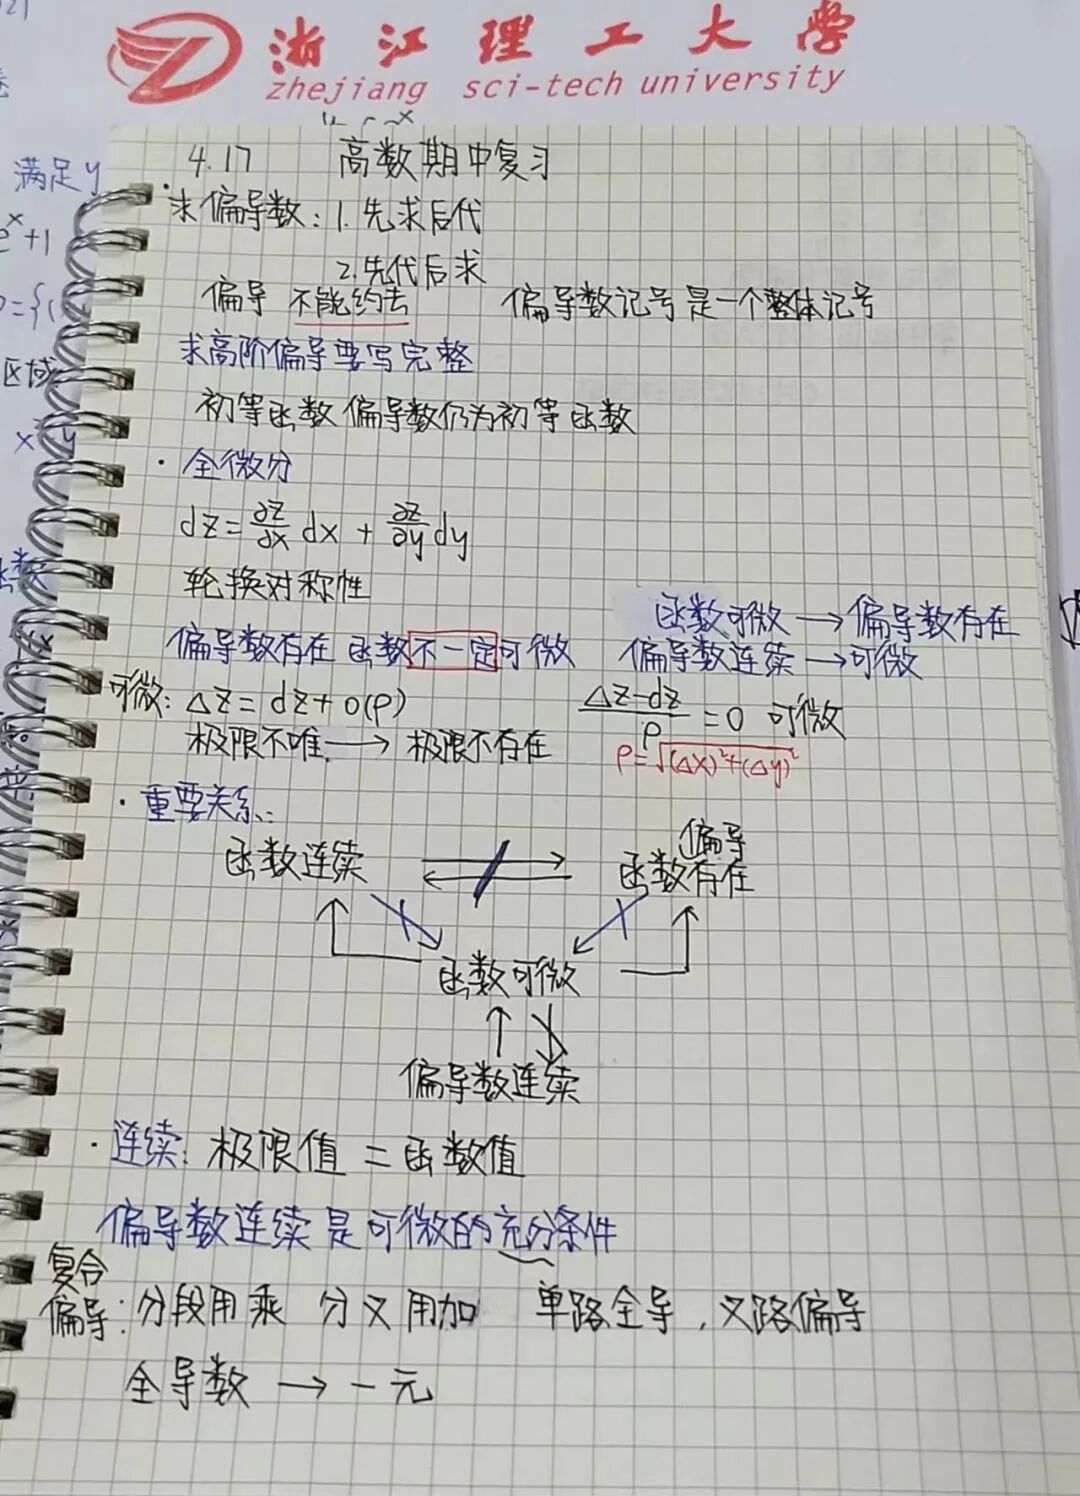 浙江理工大学
zhejiang sci-tech university
4.17 高数期中复习
满足y
·求偏导数: 1. 先求后代
2. 先代后求
偏导 不能约去 偏导数记号是一个整体记号
求高阶偏导要写完整
区域
初等函数偏导数仍为初等函数
· 全微分
dz = ∂z/∂x dx + ∂z/∂y dy
轮换对称性
函数可微 → 偏导数存在
偏导数存在 函数不一定可微 偏导数连续 → 可微
可微: Δz = dz + o(ρ) (Δz-dz)/ρ = 0 可微
极限不唯一 → 极限不存在 ρ = √(Δx)²+(Δy)²
· 重要关系:
函数连续 ⇄ 偏导函数存在
函数可微
偏导数连续
· 连续: 极限值 = 函数值
偏导数连续是可微的充分条件
复合偏导: 分段用乘 分叉用加 单路全导, 叉路偏导
全导数 → 一元